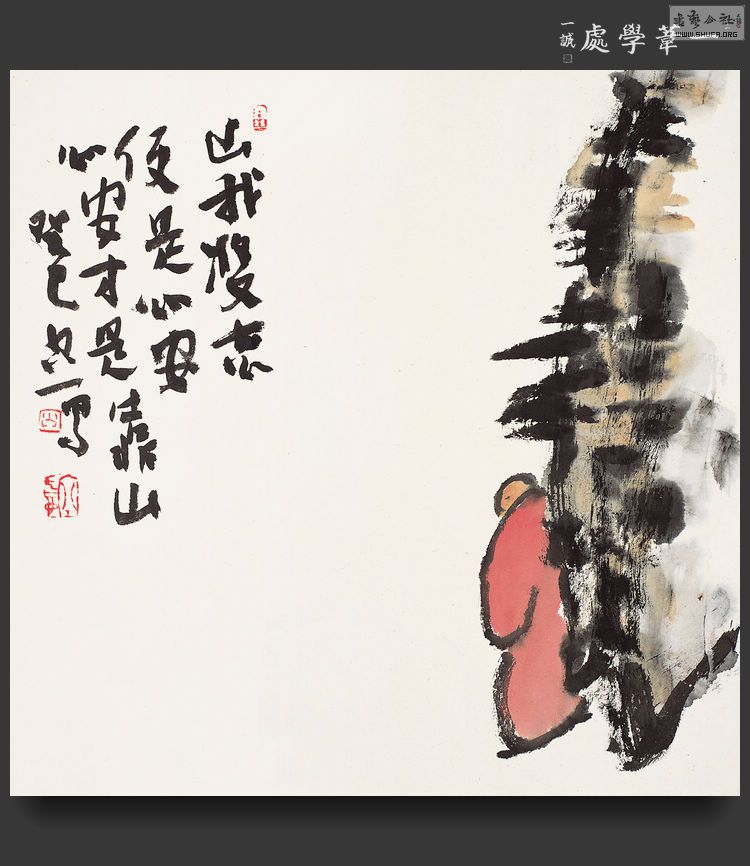 書藝公社
WWW.SHUFA.ORG
葦學處
一誠
山我雙忘
便是心安
心安才是靠山
癸巳一寫